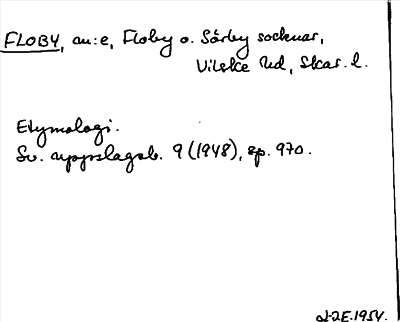 FLOBY, an:e, Floby o. Sörby socknar,
Vilske hd, Skar. l.
Etymologi.
Sv. uppslagsb. 9 (1948), sp. 970.
1954.